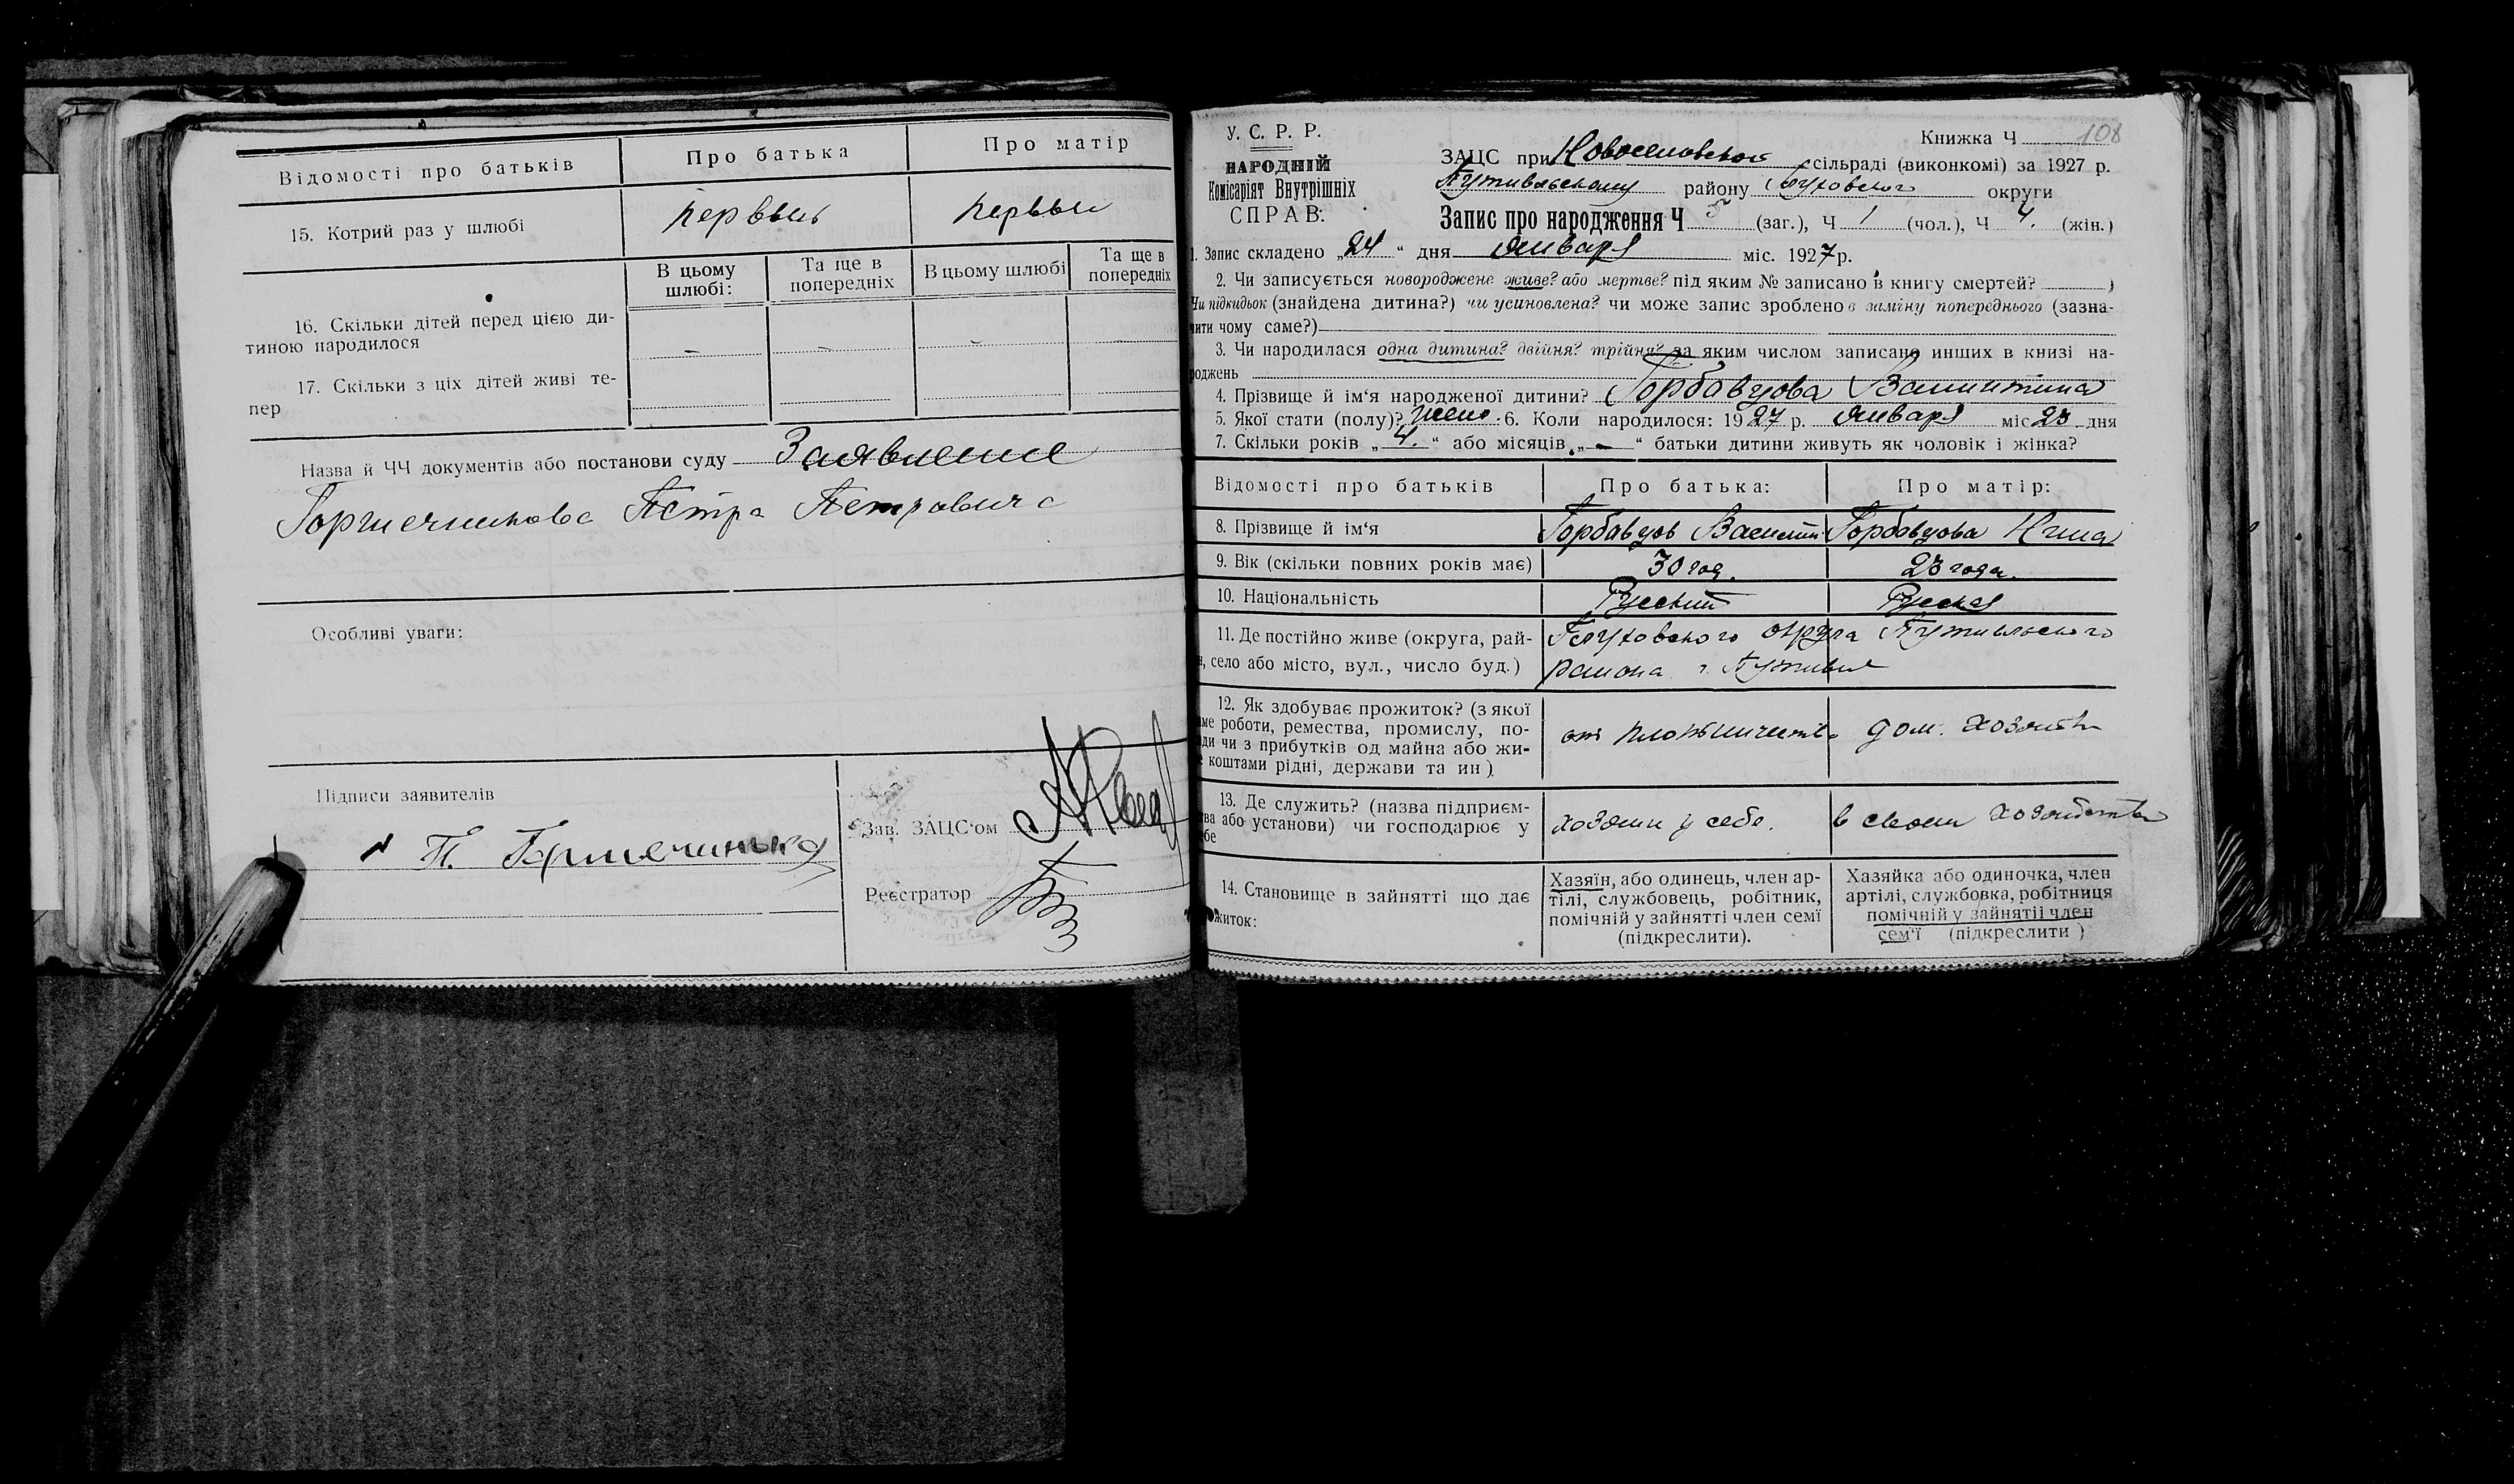 Відомості про батьків Про батька Про матір
15. Котрий раз у шлюбі первый первый
В цьому шлюбі: Та ще в попередніх В цьому шлюбі Та ще в попередніх
16. Скільки дітей перед цією ди-
тиною народилося - - - -
17. Скільки з ціх дітей живі те-
пер
Назва й ЧЧ документів або постанови суду Заявление
Горшечникова Петра Петровича
Особливі уваги:
Підписи заявителів
П. Горшечников
Зав. ЗАЦС'ом
Реєстратор
У. С. Р. Р.
НАРОДНІЙ
Комісаріят Внутрішніх
СПРАВ.
Книжка Ч 108
ЗАЦС при Новоселовской сільраді (виконкомі) за 1927 р.
Путивльскому району Глуховского округи
Запис про народження Ч 5 (заг.), Ч 1 (чол.), Ч 4. (жін.)
1. Запис складено „24“ дня января міс. 1927 р.
2. Чи записується новороджене живе? або мертве? під яким № записано в книгу смертей? )
Чи підкидьок (знайдена дитина?) чи усиновлена? чи може запис зроблено в заміну попереднього (зазна-
чити чому саме?)
3. Чи народилася одна дитина? двійня? трійня? за яким числом записано инших в книзі на-
роджень
4. Прізвище й ім‘я народженої дитини? Горбавцова Валинтина
5. Якої стати (полу)? жено. 6. Коли народилося: 1927 р. января міс 23 дня
7. Скільки років „4.“ або місяців „-“ батьки дитини живуть як чоловік і жінка?
Відомості про батьків Про батька: Про матір:
8. Прізвище й ім‘я Горбавцов Василий Горбавцова Нина
9. Вік (скільки повних років має) 30 год. 23 года.
10. Національність Русский Русская
11. Де постійно живе (округа, рай- Глуховского округа Путивльского
н, село або місто, вул., число буд.) района г. Путивля
12. Як здобуває прожиток? (з якої
аме роботи, ремества, промислу, по-
ди чи з прибутків од майна або жи-
е коштами рідні, держави та ин) от плотничества дом. хозяйства
13. Де служить? (назва підприєм-
тва або установи) чи господарює у
ебе хозяин у себе. в своем хозяйстве
14. Становище в зайнятті що дає
житок:
Хазяїн, або одинець, член ар-
тілі, службовець, робітник,
помічній у зайнятті член семї
(підкреслити).
Хазяйка або одиночка, член
артілі, службовка, робітниця
помічній у зайнятіі член
сем‘ї (підкреслити )